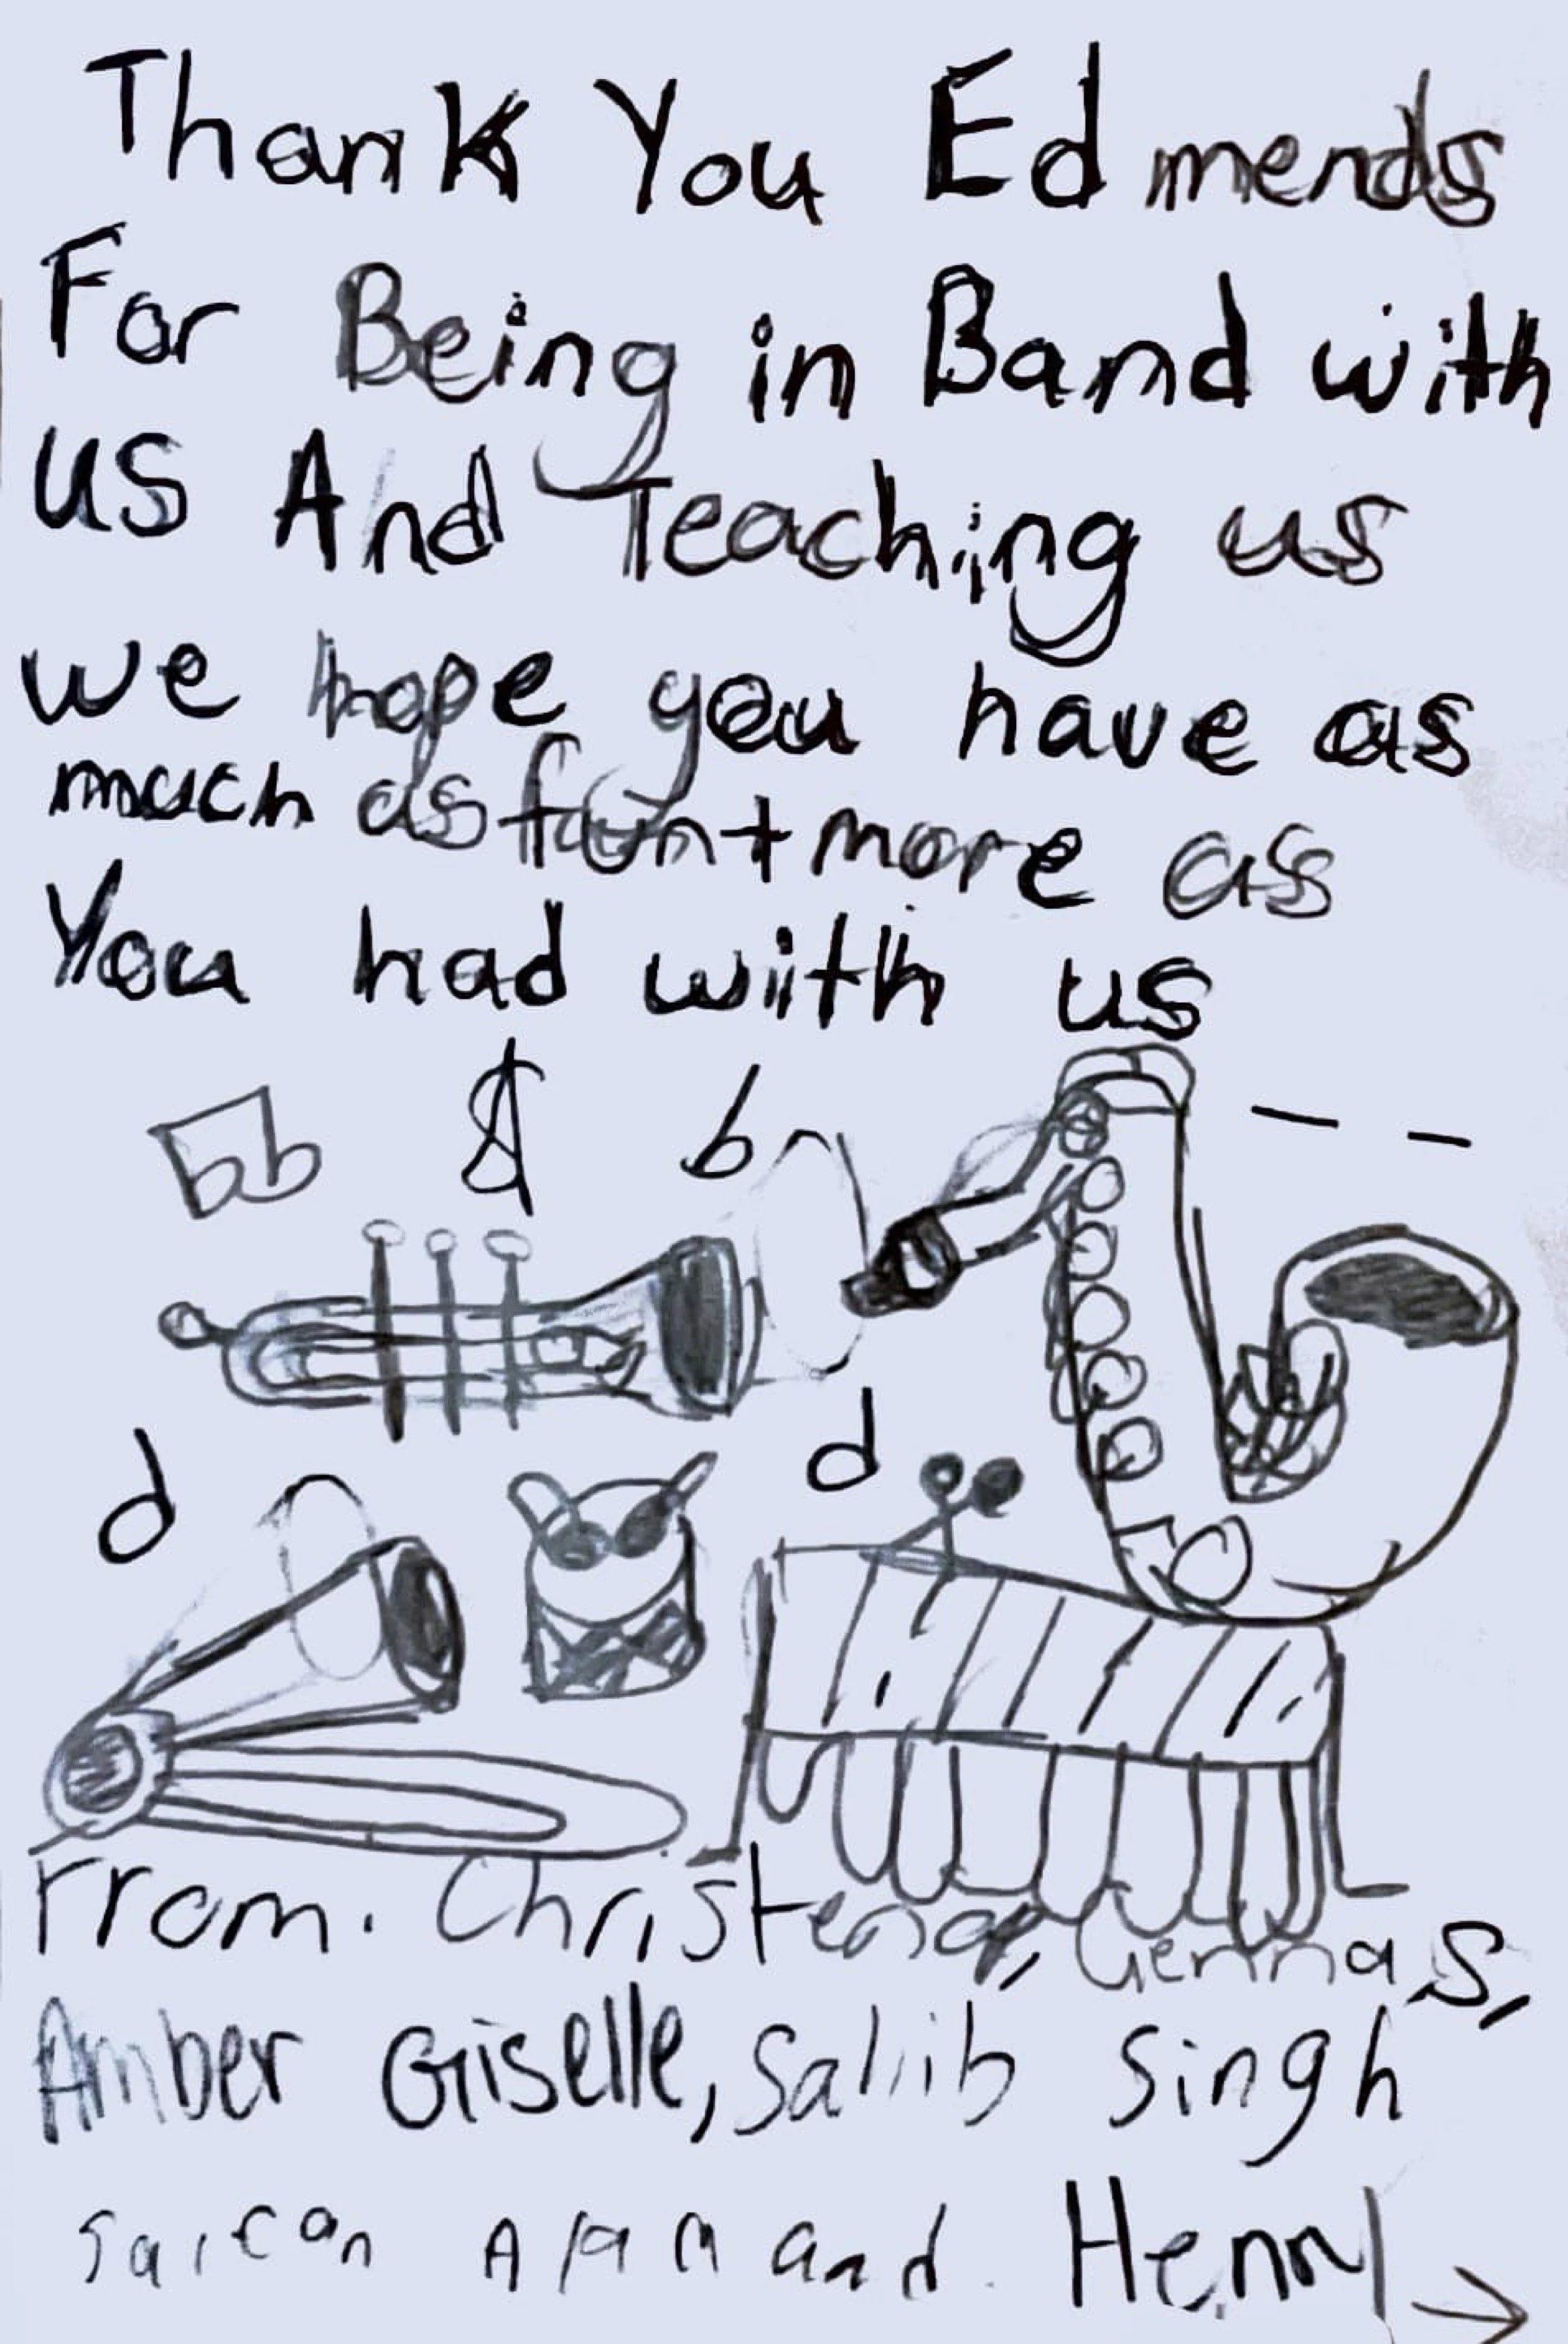 Thank You Edmends
For Being in Band with
us And Teaching us
we hope you have as
much as fun + more as
You had with us
From. Christena, Genna S,
Amber Giselle, Sahib Singh
Alam and. Henry